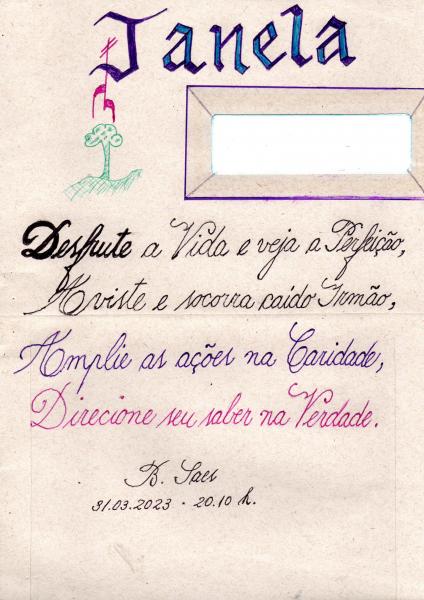 Janela
Desfrute a Vida e veja a Perfeição,
Aviste e socorra caído Irmão,
Amplie as ações na Caridade,
Direcione seu saber na Verdade.
B. Saes
31.03.2023 - 20.10 h.